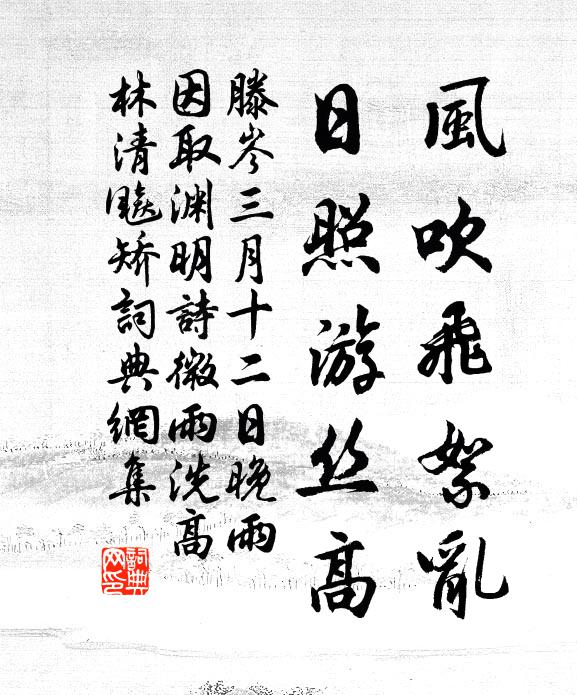 風吹飛絮亂
日照游丝高
滕岑三月十二日晚雨
因取渊明詩微雨洗高
林清飚矫詞典網集
詞典
网印